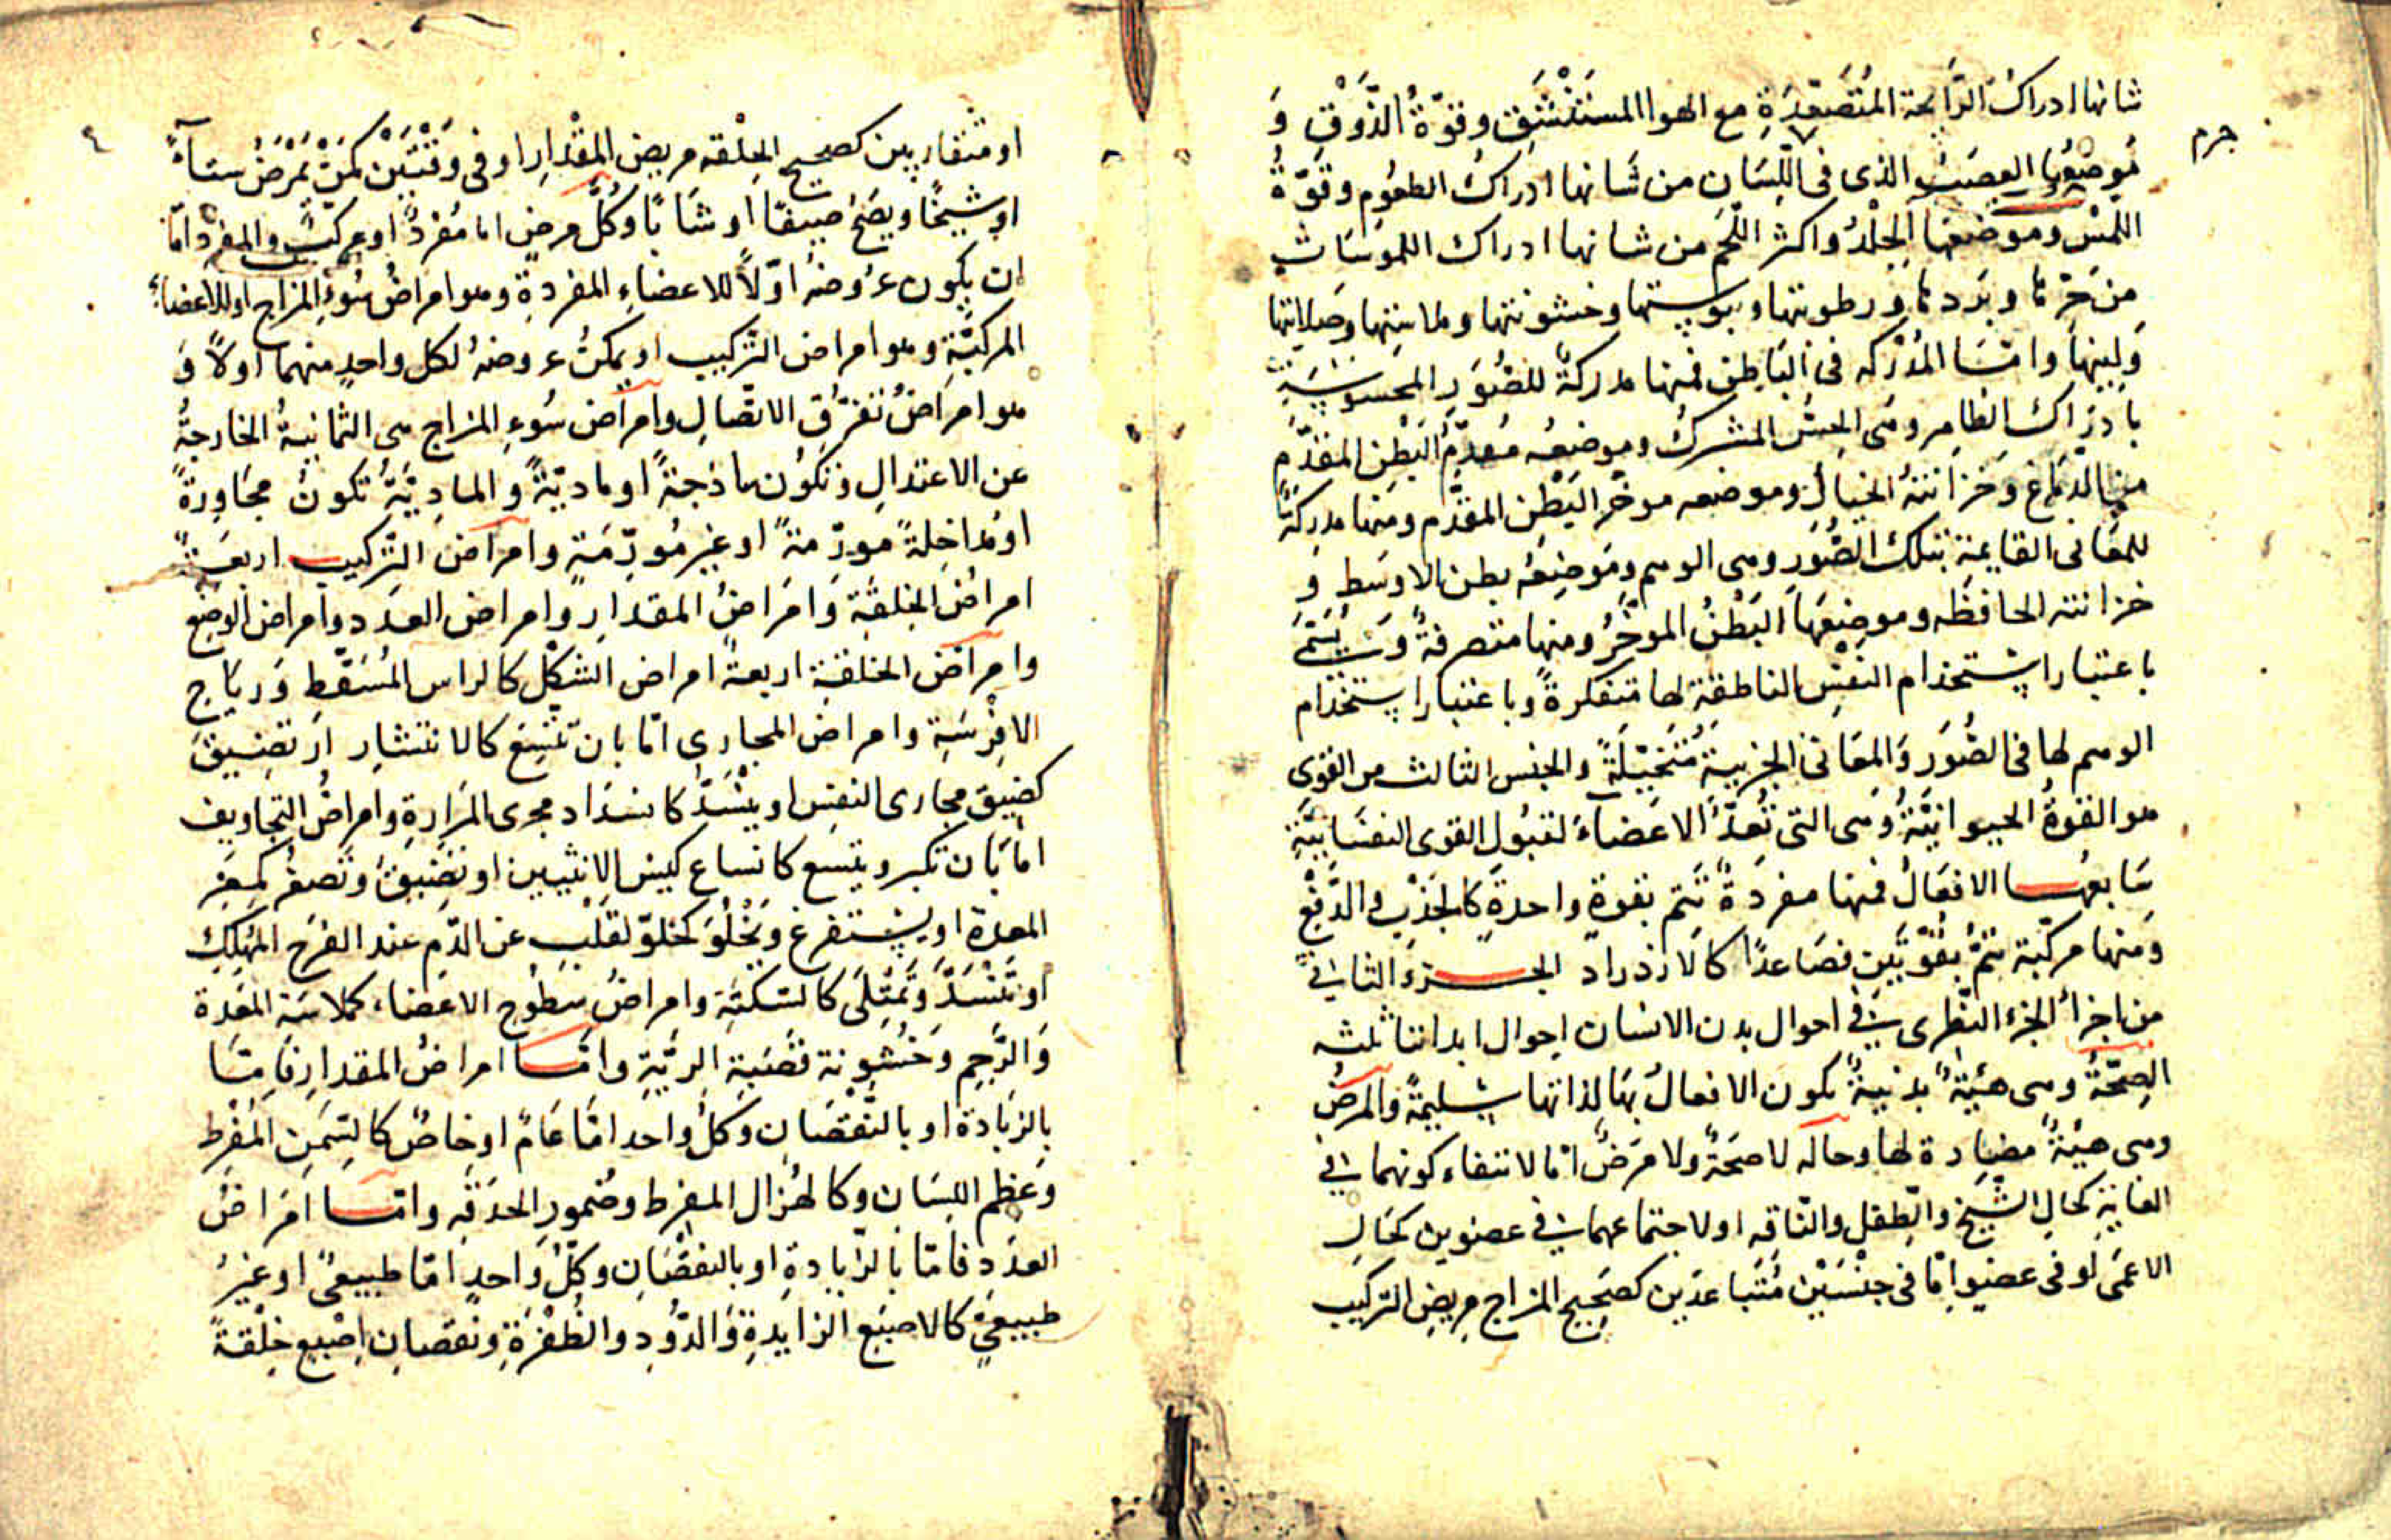 شانها ادراكُ الرَّايحة المُتَصَعِّدَةِ مع الهوا المستَنْشَق وقوّةُ الذَّوْق وَ
جرم
مَوضِعُها العصَبُ الذى فى اللِّسَان من شَانها ادرَاكُ الطعُوم وقوّةُ
اللمْسِ وموضعها الجِلْدُ واكثر اللّحم من شانها ادراك الملموسَات
من حَرّها وبَردها ورطوبتها ويبُوستها وخشونتها وملاستِها وصَلابتها
وَلينِها وامّا المُدْرِكه فى البَاطِن فمنها مدركةٌ للصُّوَر المحسُوسَةِ
بادرَاك الظاهر وهى الحِسُّ المشترك وموضعه مُقدَّمُ البَطْنِ المقدّم
من الدّمَاغ وَخزانتهُ الخيالُ وموضعه موخّر البَطْنِ المقدّم ومنها مدركة
للمعَانى القايمة بتلك الصُّوَرِ وهى الوهم ومَوضِعُه بطن الاوسَط وَ
خزانته الحافظه وموضعهَا البَطْنُ الموخَّرُ ومنها متصرفةٌ وتُسَمّى
باعتبار استخدام النفسِ الناطقةِ لها متفكرةً وباعتبار استخدام
الوهم لها فى الصُّوَر وَالمعَانى الجزييةِ مُتَخيّلَةً والجنس الثالث من القوى
هو القوةُ الحيوانيَّةُ وهى التى تُعِدُّ الاعضآءَ لقبُول القوى النفسَانيّةِ
سَابعُهـا الافعَالُ فمنها مفردَةٌ تَتم بقوةٍ واحدةٍ كالجَذْب والدَّفْع
وَمنها مركّبة تتمُّ بقُوّتَيْن فصَاعدًا كالازدراد الجـزءُ الثانى
من اجزأ الجزء النّظرى فى احوال بدن الانسان احوال ابداننا ثلثه
الصِحّةُ وهى هيْئةٌ بدنيةٌ تكون الافعالُ بهَا لذاتها سليمةً والمرَضُ
وهى هيْئةٌ مضادة لها وحاله لا صحَةٌ ولا مَرَضٌ امّا لانتفاء كونهما فى
الغايةِ كحالِ الشّيخ والطِفل والنّاقه او لاجتماعهما فى عضوين كحَالِ
الاعمى او فى عضوٍ امّا فى جنْسَيْن مُتَباعدَين كصَحيح المزاج مريضِ التركيب
او متقاربين كصحيح الخِلْقه مريض المِقْدارِ او فى وقتَيْن كمَنْ يَمْرَضُ شتآءً
او شيخًا ويصَحّ صيفًا او شَابًا وكُلّ مرضٍ اما مُفردٌ او مركبٌ والمفرد امّا
ان يكون عرُوضهُ اوّلاً للاعضاءِ المفردةِ وهو امراضُ سُوءِ المزاج او للاعضاءِ
المركبّةِ وهو امراض التركيب او يمكنُ عروضهُ لكل واحدٍ منهما اولاً وَ
هو امراضُ تفرّق الاتّصالِ وامراض سُوءِ المزاج هى الثمانيةُ الخارجةُ
عن الاعتدالِ وتكُون ساذجةً او ماديّةً والمادِيّةُ تكونُ مجَاورةً
او مُداخِلةً مورّمةً او غير مُورِّمَةٍ وامراض التّركيب اربعَـةٌ
امراضُ الخلقَةِ وَامَراضُ المقدارِ وامراض العدَد وامراض الوضْع
وامراض الخلقةِ اربعةٌ امراض الشكْل كالراس المُسَفَّط وَرياح
الافْرسَةِ وامراض المجارى امّا بان تتّسِعَ كالانتشار او تضيقَ
كضيق مجارى النفسِ او ينْسَدَّ كانسداد مجرى المَرارةِ وامراضُ التجاويف
امّا بان تكبر ويتسع كاتساع كيسِ الانثيين او تضيقَ وتَصغُر كصِغَر
المعدة او يستفرغ ويَخْلُوَ كخلوّ لقَلْبِ عن الدّم عند الفرَح المُهْلكِ
او تَنْسَدَّ وَتمتلى كالسّكتةِ وامراضُ سَطُوح الاعضاء كملاسَة المعَدة
وَالرَّحِم وَخُشونة قَصَبَة الرّيَّةِ وامّـا امراضُ المقدارِ فامّا
بالزيَادة او بالنّقصَان وكلٌ واحد امّا عَامٌ او خَاصٌ كالسّمَنِ المُفرِط
وَعظم اللسَان وكالهُزال المفرط وضُمورِ الحدَقه وامّـا امَراضُ
العدَد فامّا بالزّيادةِ او بالنقصَانِ وكلُّ وَاحدٍ امّا طبيعىٌ او غيرُ
طبيعىٍّ كالاصبَع الزايدةِ وَالدُّودِ والظُفْرَةِ ونُقصانِ اِصْبعٍ خِلْقةً